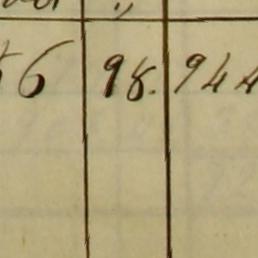 56 98. 944